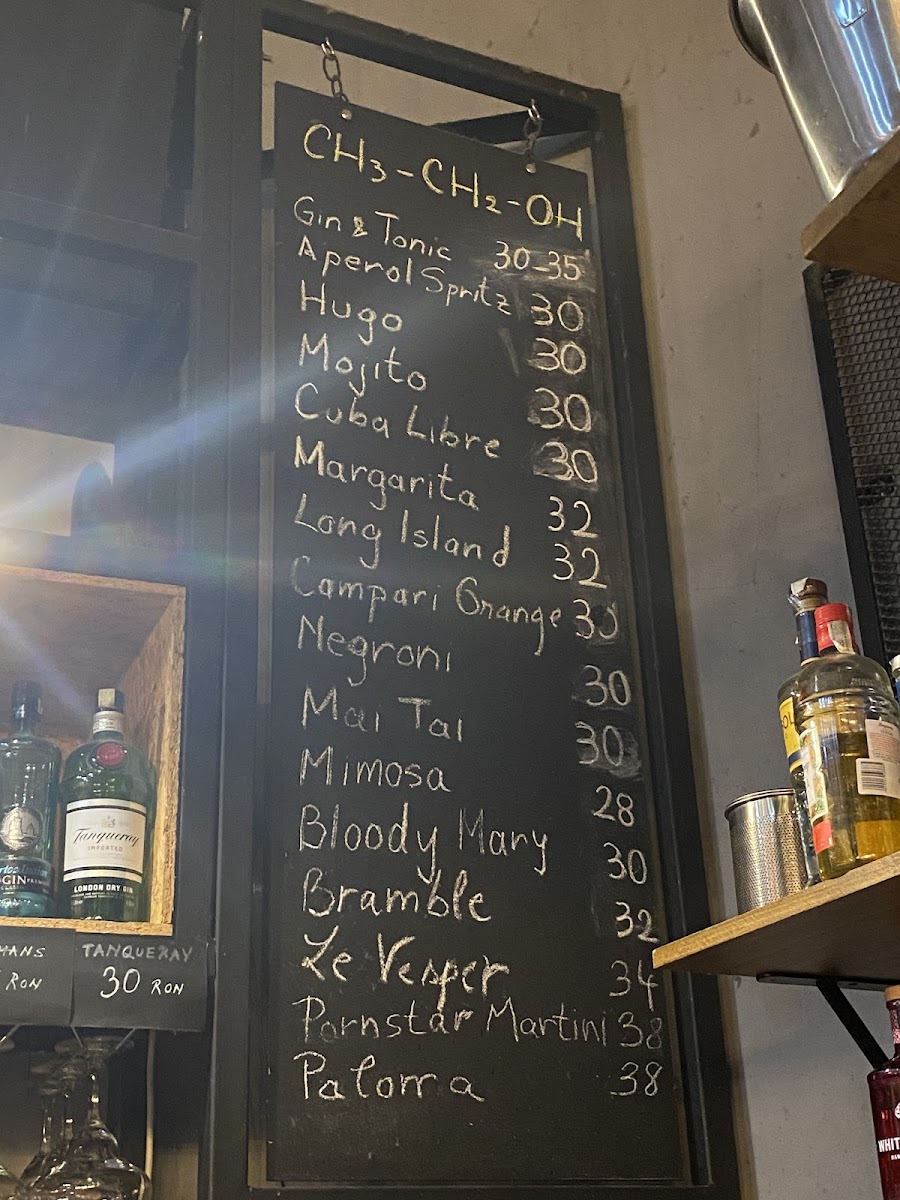 CH3-CH2-OH
Gin & Tonic 30-35
Aperol Spritz 30
Hugo 30
Mojito 30
Cuba Libre 30
Margarita 32
Long Island 32
Campari Orange 30
Negroni 30
Mai Tai 30
Mimosa 28
Bloody Mary 30
Bramble 32
Le Vesper 34
Pornstar Martini 38
Paloma 38
Tanqueray
IMPORTED
LONDON DRY GIN
GIN
MANS
RON
TANQUERAY
30 RON
WHIT